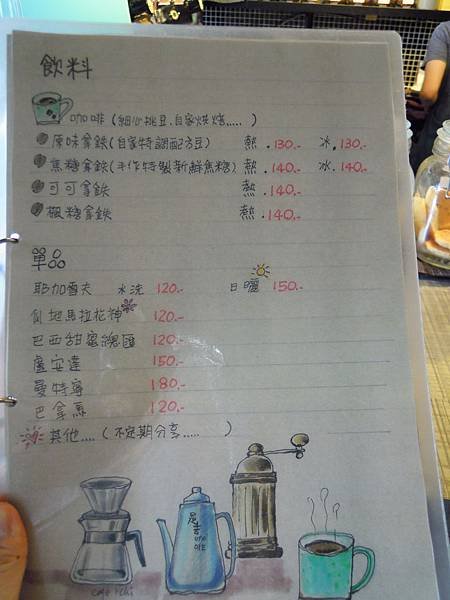 飲料
咖啡(細心挑豆.自家烘焙.....)
原味拿鉄(自家特調配方豆) 熱.130.- 冰.130.-
焦糖拿鉄(手作特製新鮮焦糖) 熱.140.- 冰.140.-
可可拿鉄 熱.140.-
楓糖拿鉄 熱.140.-
單品
耶加雪夫 水洗 120.- 日曬 150.-
瓜地馬拉花神 120.-
巴西甜蜜總匯 120.-
盧安達 150.-
曼特寧 180.-
巴拿馬 120.-
其他....(不定期分享.....)